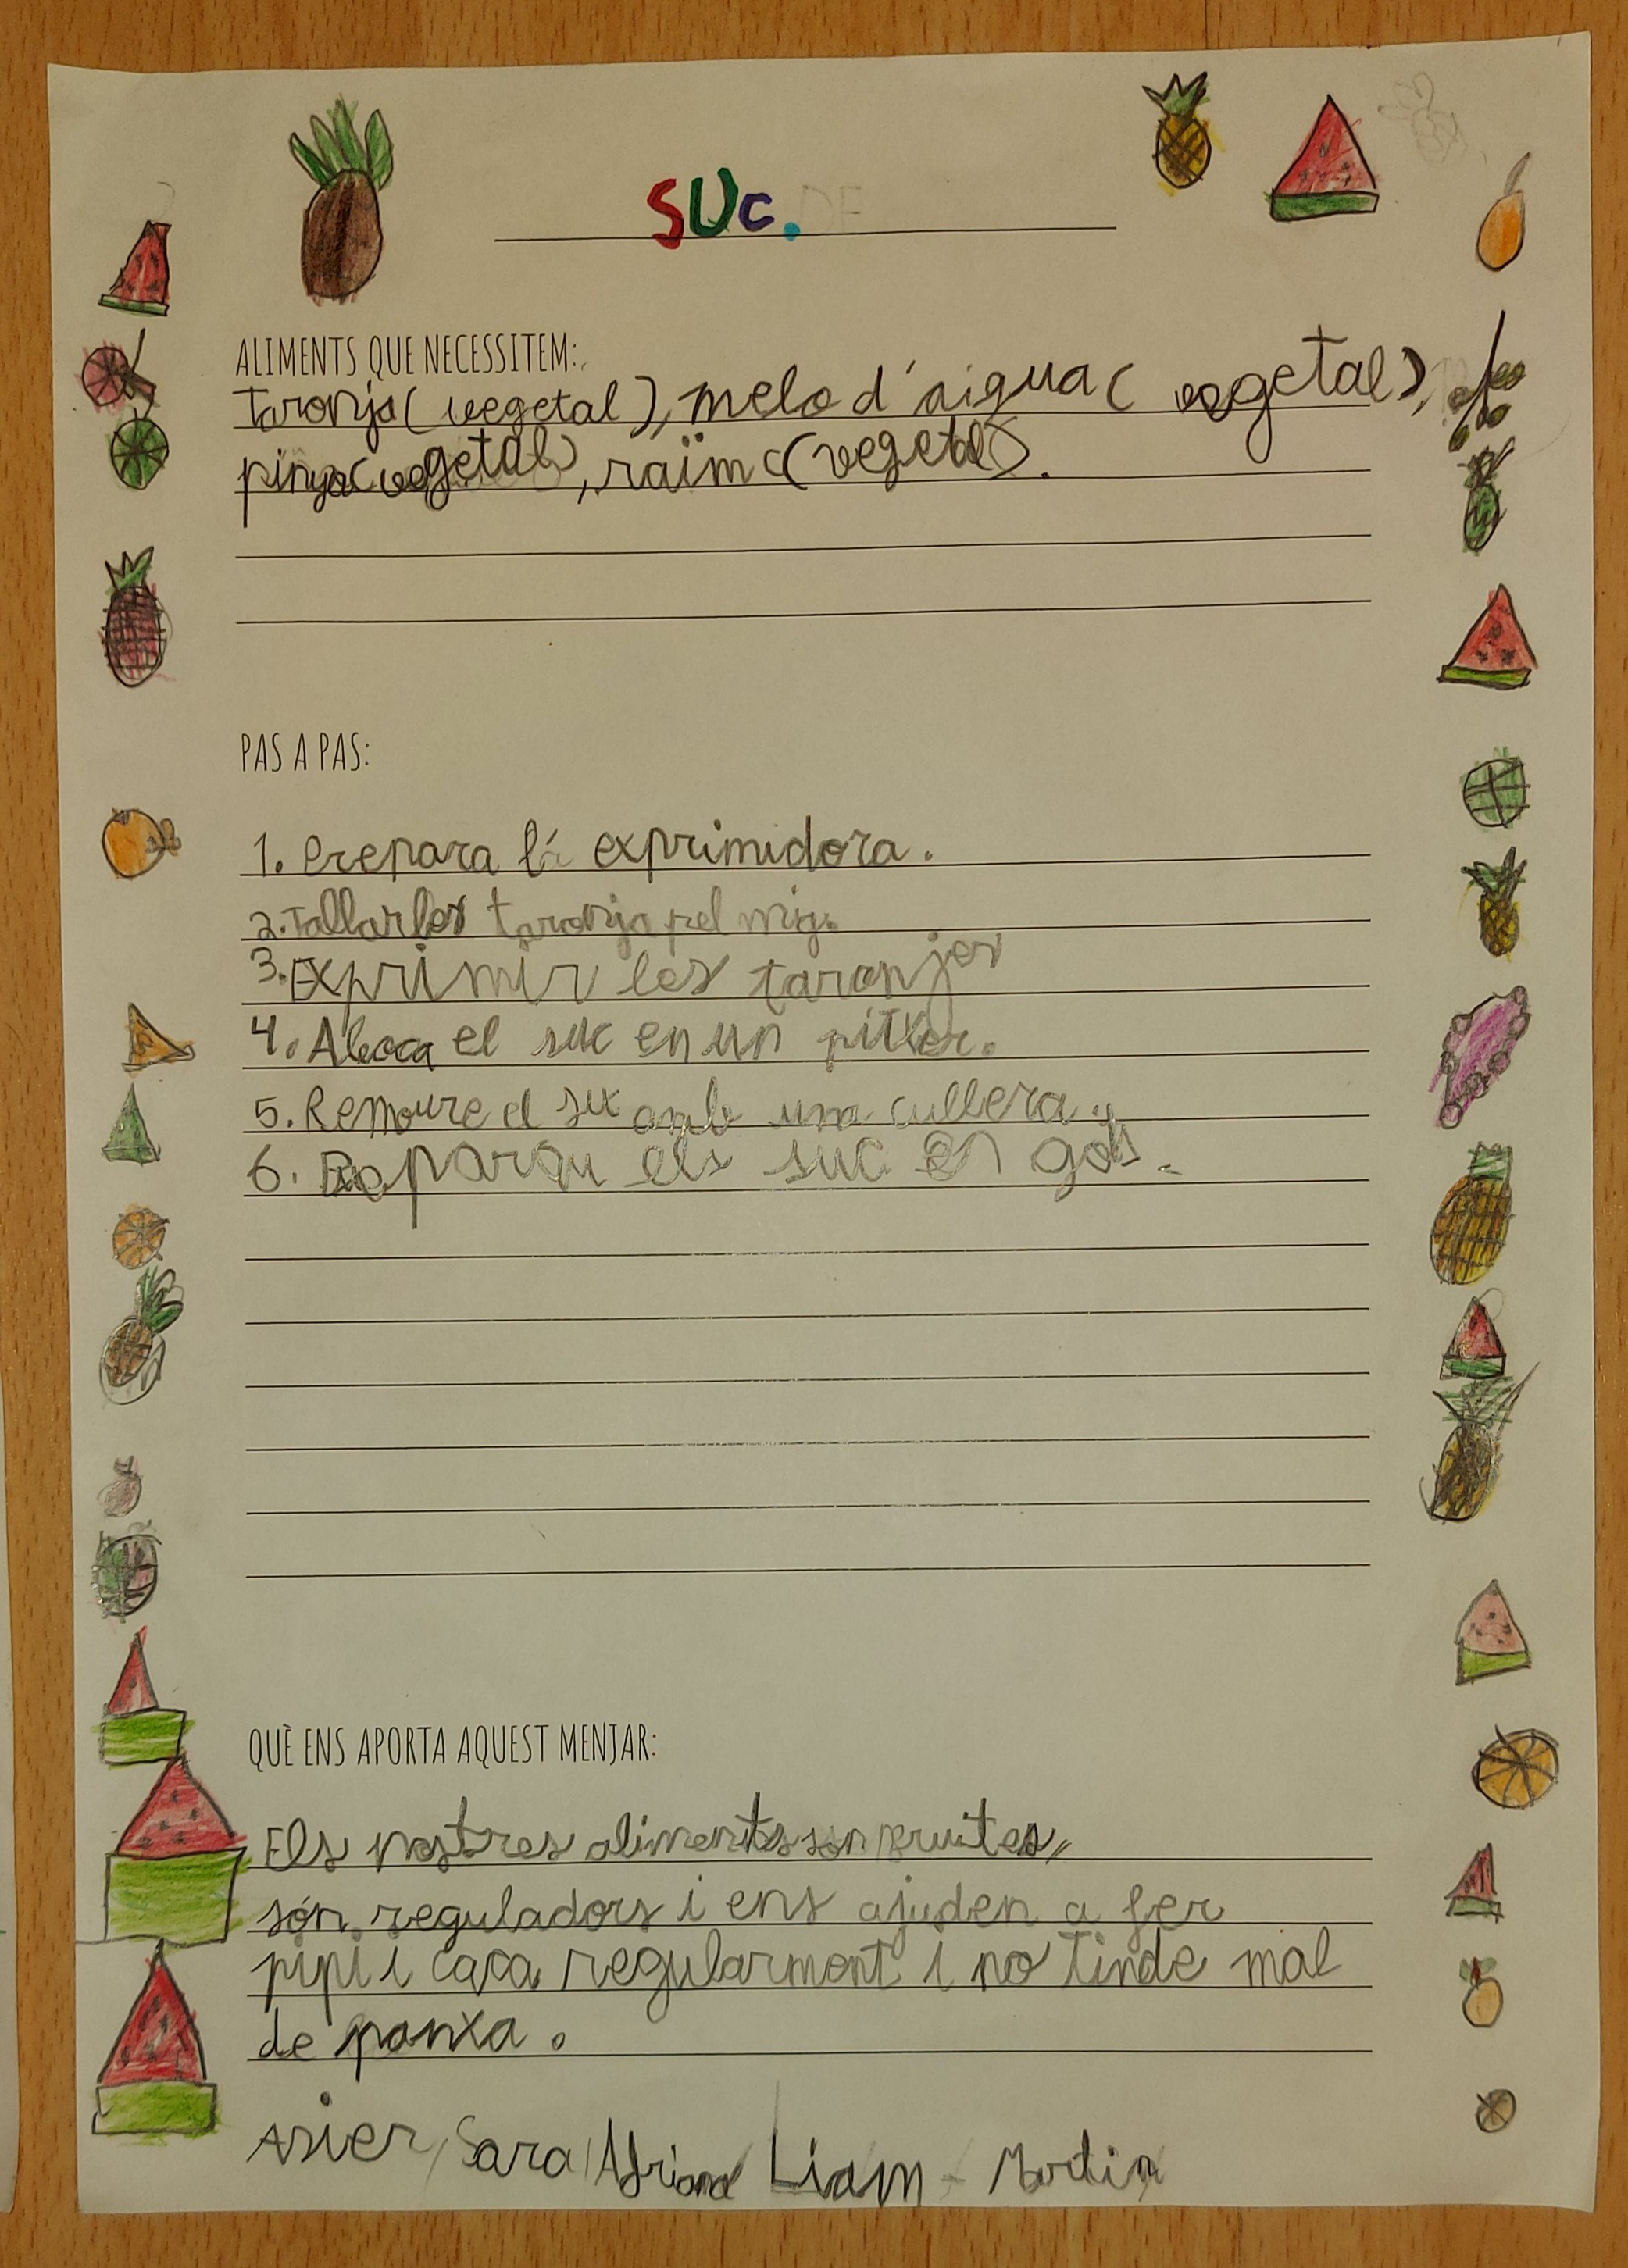 SUC.
ALIMENTS QUE NECESSITEM:
taronja (vegetal), melo d'aigua (vegetal),
pinya (vegetal), raïm (vegetal).
PAS A PAS:
1. Prepara la exprimidora.
2. Tallar les taronja pel mig.
3. Exprimir les taronjes
4. Aboca el suc en un pitxer.
5. Remoure el suc amb una cullera.
6. els suc en gots.
QUÈ ENS APORTA AQUEST MENJAR:
Els nostres aliments son fruites,
són reguladors i ens ajuden a fer
pipi i caca regularment i no tinde mal
de panxa.
Asier, Sara, Liam - Martin